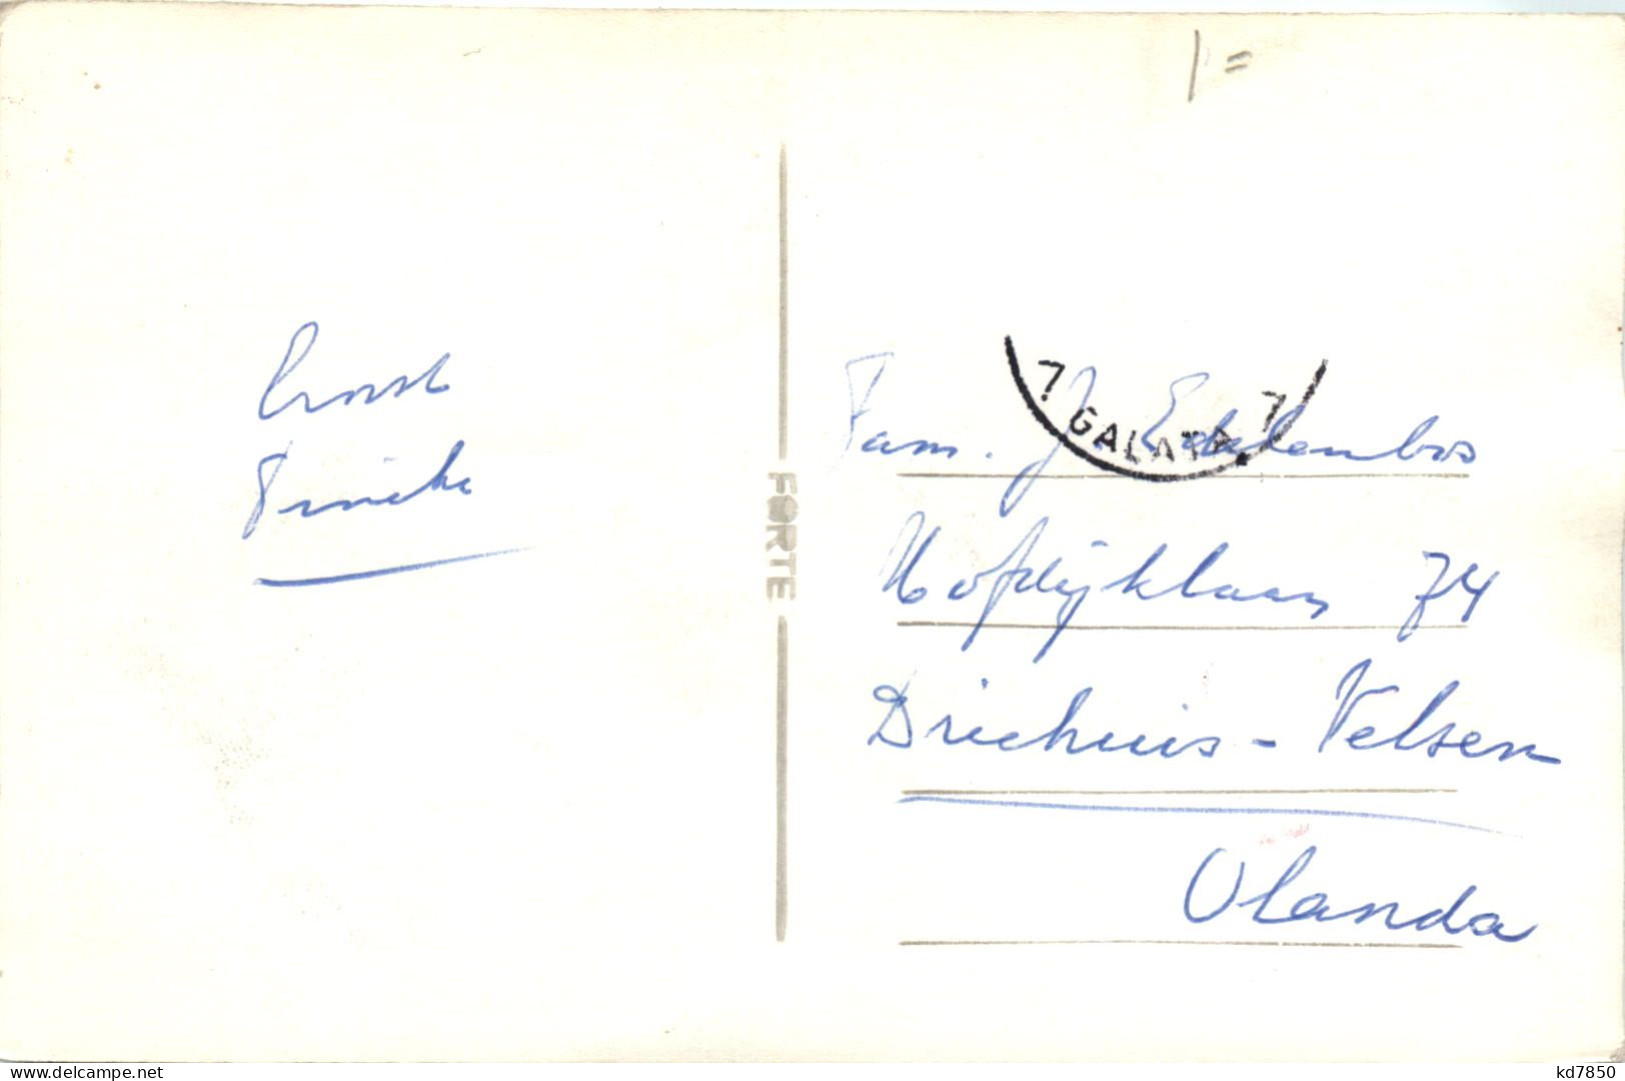 1 =
Ernst
FORTE
7 GALATA 7
Fam. J. Eekelenbos
Hofdijklaan 74
Driehuis - Velsen
Olanda
delcampe.net
kd7850